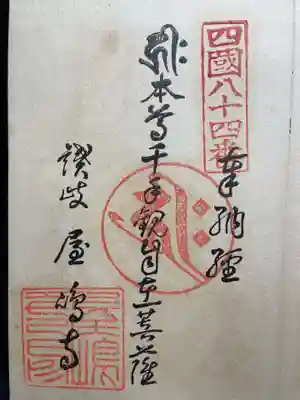 四國八十四番
奉納經
本尊千手観自在菩薩
讃岐屋嶋寺